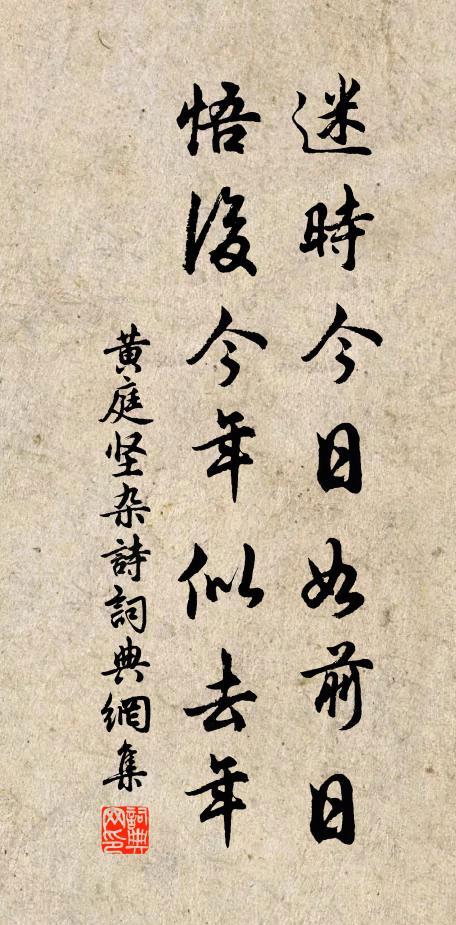 迷時今日如前日
悟後今年似去年
黄庭坚杂詩詞典網集
詞典网印